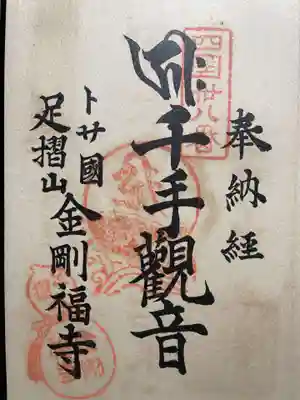 奉納経
四国卅八番
千手觀音
トサ國
足摺山金剛福寺